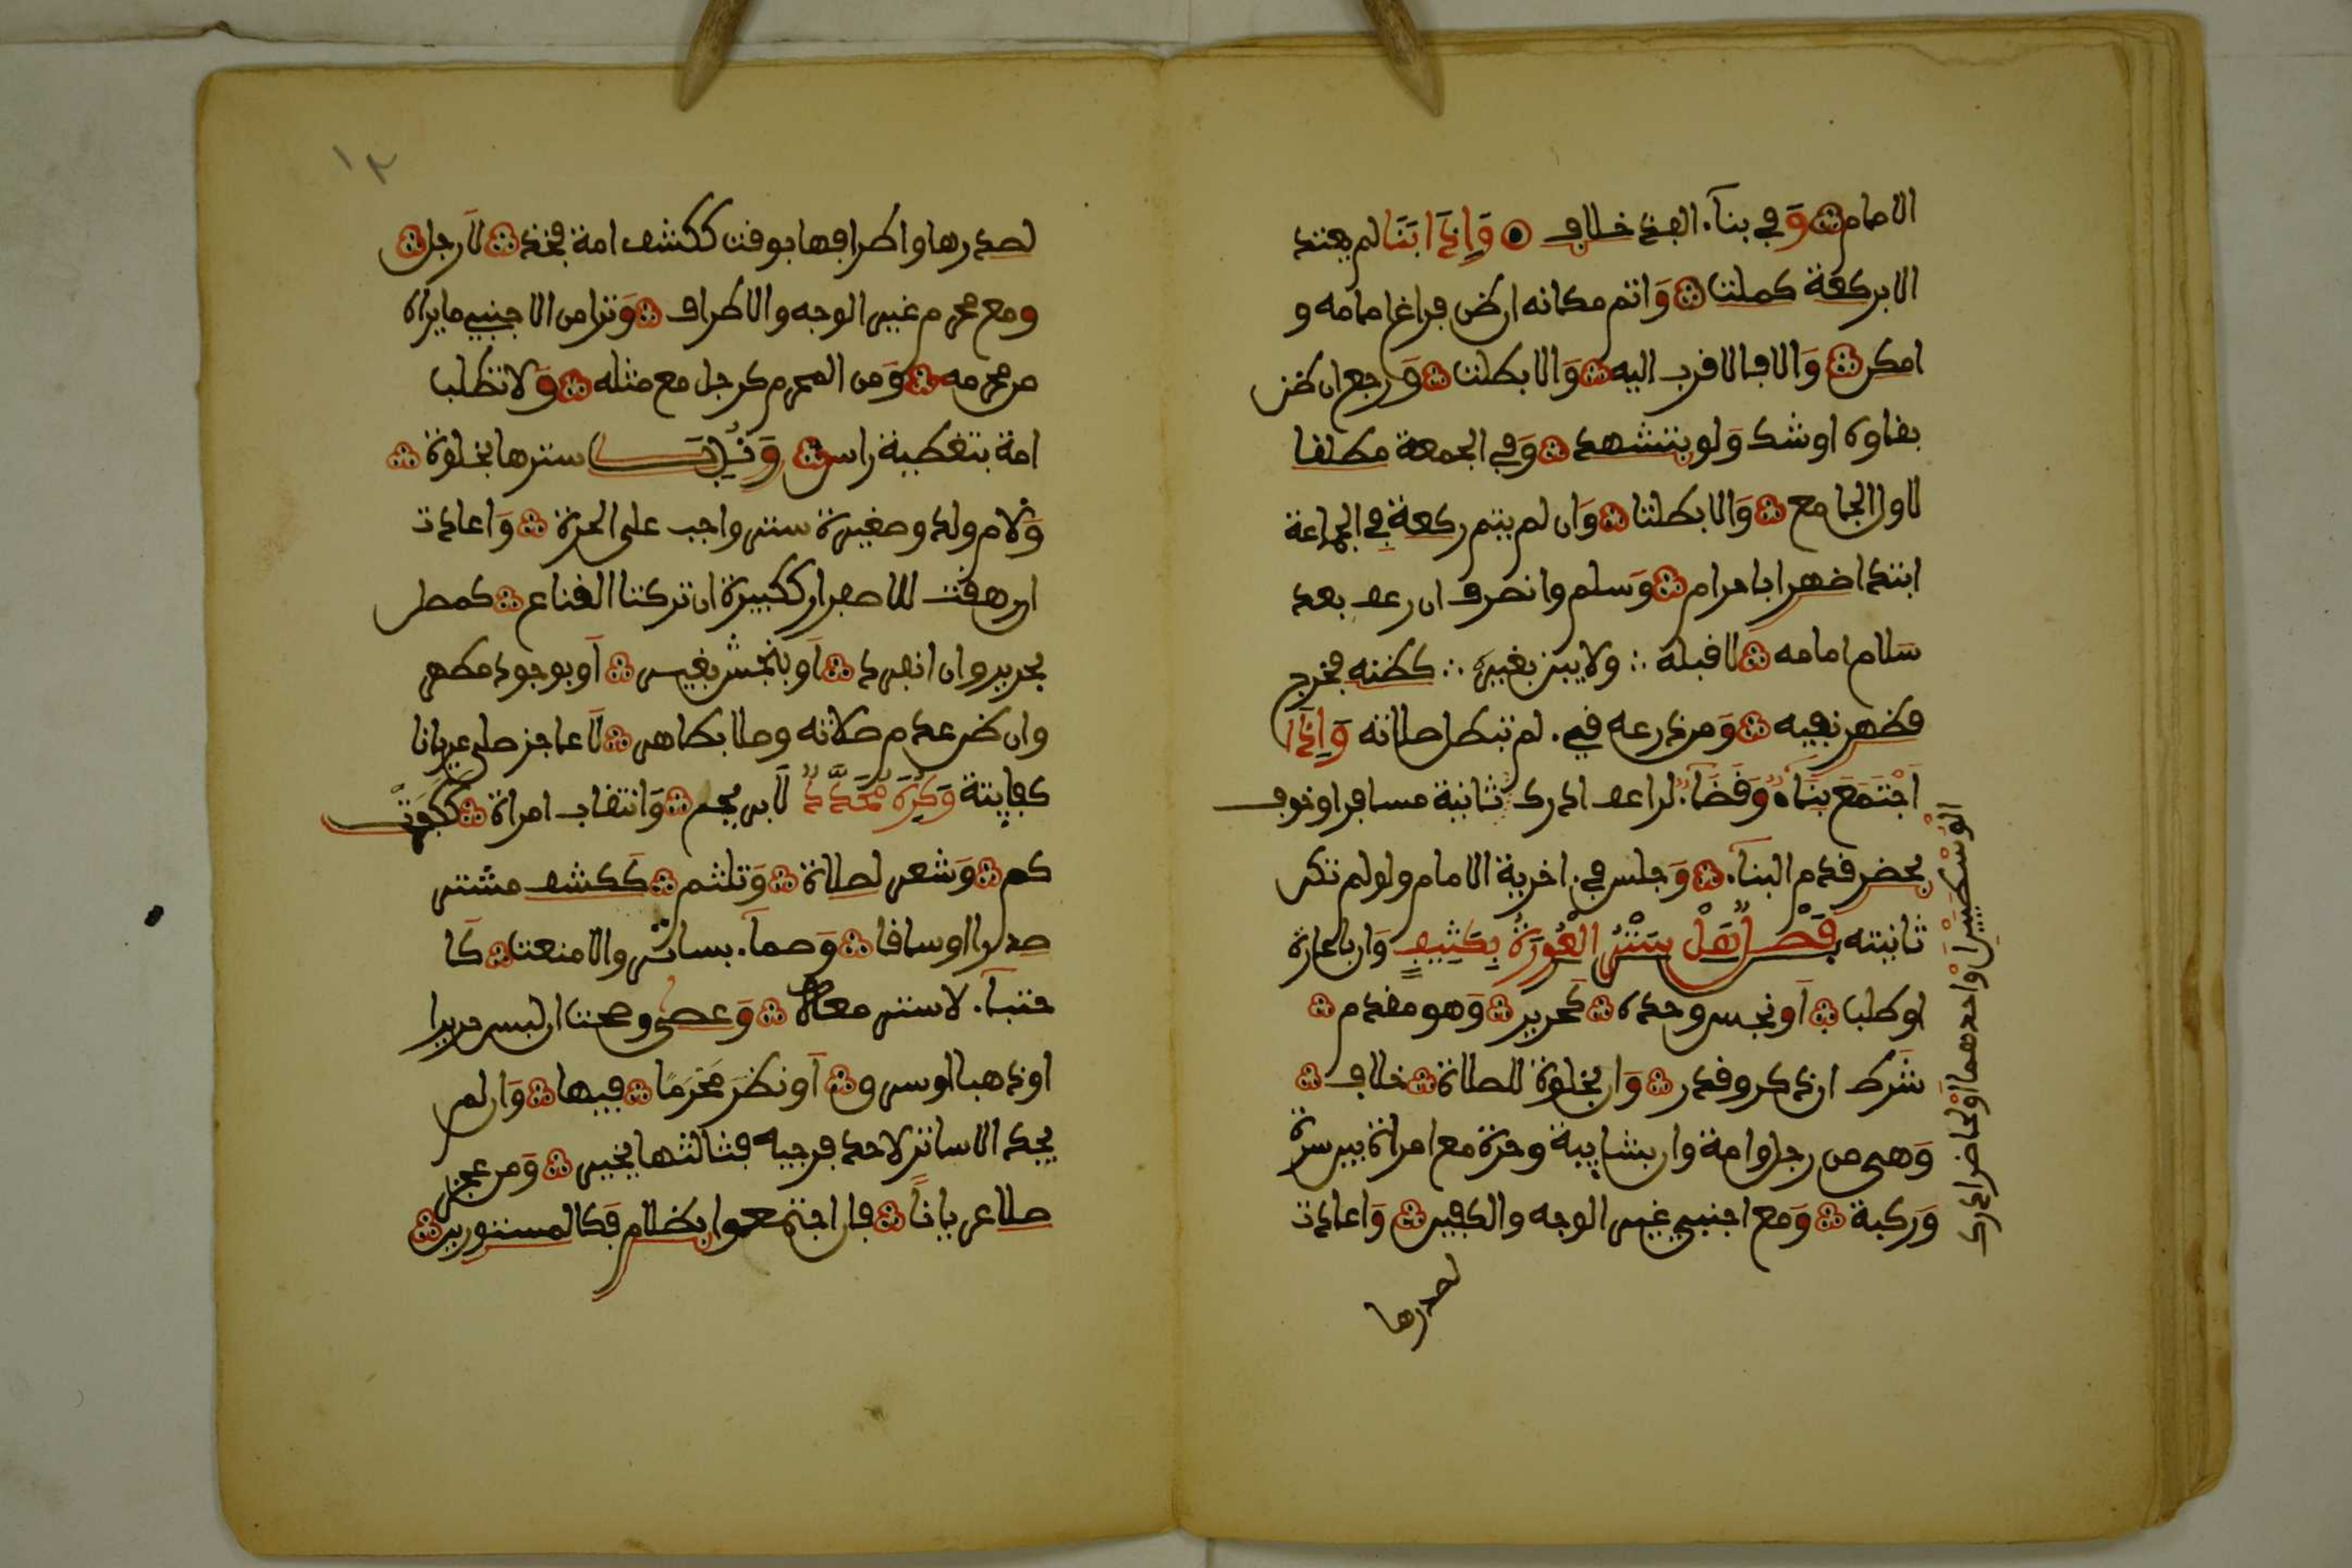 الامام وَفي بناء الفذ خلاف وَإِذَا ابَنَا لم يعتد
الا بركعة كملت وَاتم مكانه ان ظن فراغ امامه و
امكن وَالا فالاقرب اليه وَالا بطلت وَرجع ان ظن
بقاءه او شك وَلو بتشهد وَفي الجمعة مطلقا
لاول الجامع وَالا بطلتا وَان لم يتم ركعة في الجماعة
ابتدا ظهرا باحرام وَسلم وانصرف ان رعف بعد
سلام امامه لا قبله ولا يبن بغيره كظنه فخرج
فظهر نفيه وَمن ذرعه فيء لم تبطل صلاته وَإِذَا
اجْتَمَعَ بِنَاءٌ وَقَضَاءٌ لراعف ادرك ثانية مسافر او خوف
الْوُسْطَيَيْنِ اَوْ احدهما اَوْ لحاضر ادرك
بحضر قدم البناء وَجلس في اخرية الامام ولو لم تكن
ثانيته فَصْلٌ هَلْ سَتْرُ الْعَوْرَةِ بِكَثِيفٍ وَان باعارة
او طلب اَو نجس وحده كَحرير وَهو مقدم
شَرط ان ذكر وقدر وَان بخلوة للصلاة خلاف
وَهى من رجل وامة وان بشايبة وحرة مع امراة بين سرة
وَركبة وَمع اجنبي غير الوجه والكفين وَاعادت
لصدرها
١٢
لصدرها واطرافها بوقت ككشف امة فخذ لَا رجل
ومع محرم غير الوجه والاطراف وَترا من الاجنبي ما يراه
من محرمه وَمن المحرم كرجل مع مثله وَلا تطلب
امة بتغطية راس وَنُدِبَ سترها بخلوة
وَلام ولد وصغيرة ستر واجب على الحرة وَاعادت
ان راهقت للاصفرار ككبيرة ان تركتا القناع كمصل
بحرير وان انفرد اَو بنجس بغير اَو بوجود مطهر
وان ظن عدم صلاته وصلا بطاهر لَا عاجز صلى عريانا
كفايتة وَكُرِهَ مُحَدَّدٌ لَا بريح وَانتقاب امراة كَكَفِّ
كم وَشعر لصلاة وَتلثم كَكشف مشتر
صدرا او ساقا وَصماء بساتر والا منعت كَا
حتباء لا ستر معه وَعصى وصحت ان لبس حريرا
او ذهبا او سرق اَو نظر مَحْرَمًا فيها وَان لم
يجد الا ساترا لاحد فرجيه فثالثها يخير وَمن عجز
صلا عريانًا فان اجتمعوا بظلام فكالمستورين